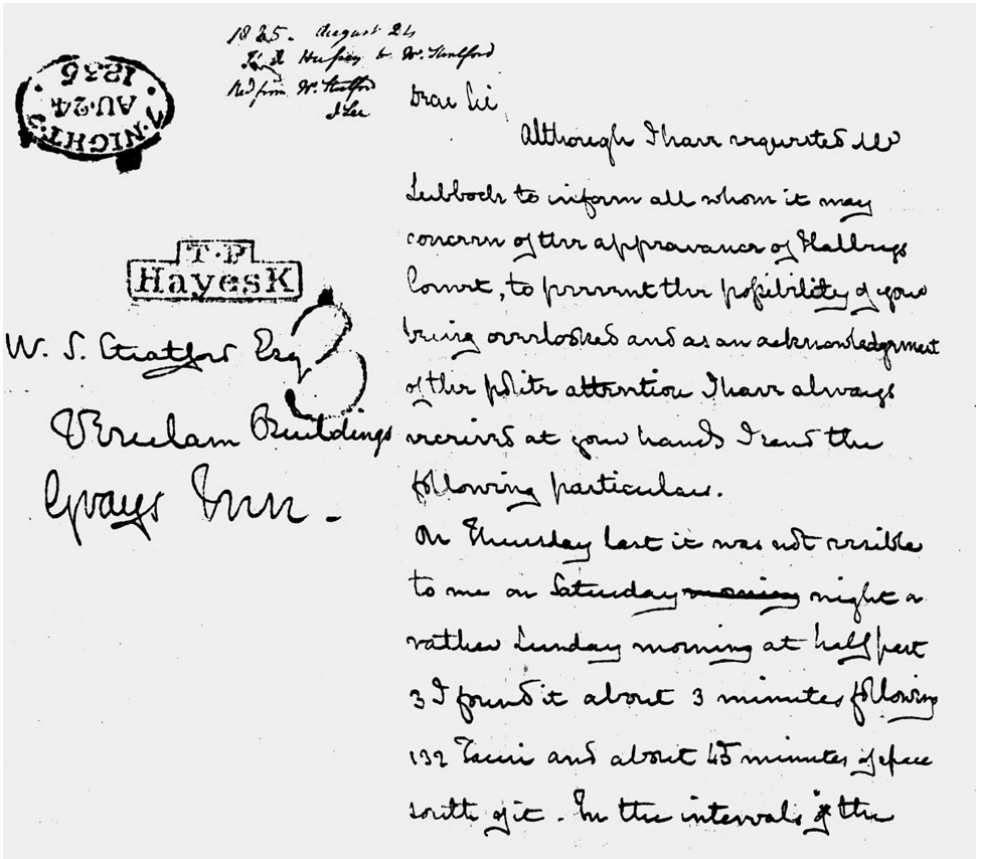 1835. August 24
Hussey to W. Stratford
Recd from W. Stratford
J Lee
7·NIGHT·7
AU·24
1835
T.P
HayesK
3
W. S. Stratford Esq
Verulam Buildings
Grays Inn -
Dear Sir
Although I have requested Mr
Lubbock to inform all whom it may
concern of the appearance of Halleys
Comet, to prevent the possibility of your
being overlooked and as an acknowledgement
of the polite attention I have always
received at your hands I send the
following particulars.
On Thursday last it was not visible
to me on Saturday night or
rather Sunday morning at half past
3 I found it about 3 minutes following
132 Tauri and about 45 minutes of space
south of it. In the intervals of the